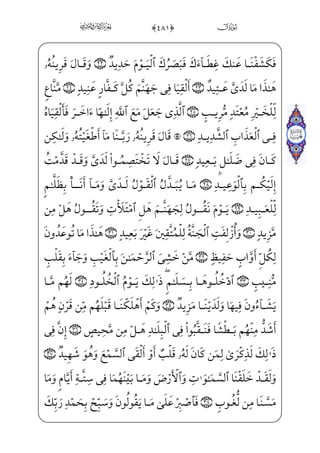 ﴿٤٨١﴾
فَكَشَفْنَا عَنكَ غِطَآءَكَ فَبَصَرُكَ ٱلْيَوْمَ حَدِيدٌ ٢٢ وَقَالَ قَرِينُهُۥ
هَٰذَا مَا لَدَىَّ عَتِيدٌ ٢٣ أَلْقِيَا فِى جَهَنَّمَ كُلَّ كَفَّارٍ عَنِيدٍ ٢٤ مَّنَّاعٍ
لِّلْخَيْرِ مُعْتَدٍ مُّرِيبٍ ٢٥ ٱلَّذِى جَعَلَ مَعَ ٱللَّهِ إِلَٰهًا ءَاخَرَ فَأَلْقِيَاهُ
فِى ٱلْعَذَابِ ٱلشَّدِيدِ ٢٦ ۞ قَالَ قَرِينُهُۥ رَبَّنَا مَآ أَطْغَيْتُهُۥ وَلَٰكِن
كَانَ فِى ضَلَٰلٍۭ بَعِيدٍ ٢٧ قَالَ لَا تَخْتَصِمُوا۟ لَدَىَّ وَقَدْ قَدَّمْتُ
إِلَيْكُم بِٱلْوَعِيدِ ٢٨ مَا يُبَدَّلُ ٱلْقَوْلُ لَدَىَّ وَمَآ أَنَا۠ بِظَلَّٰمٍ
لِّلْعَبِيدِ ٢٩ يَوْمَ نَقُولُ لِجَهَنَّمَ هَلِ ٱمْتَلَأْتِ وَتَقُولُ هَلْ مِن
مَّزِيدٍ ٣٠ وَأُزْلِفَتِ ٱلْجَنَّةُ لِلْمُتَّقِينَ غَيْرَ بَعِيدٍ ٣١ هَٰذَا مَا تُوعَدُونَ
لِكُلِّ أَوَّابٍ حَفِيظٍ ٣٢ مَّنْ خَشِىَ ٱلرَّحْمَٰنَ بِٱلْغَيْبِ وَجَآءَ بِقَلْبٍ
مُّنِيبٍ ٣٣ ٱدْخُلُوهَا بِسَلَٰمٍ ۖ ذَٰلِكَ يَوْمُ ٱلْخُلُودِ ٣٤ لَهُم مَّا
يَشَآءُونَ فِيهَا وَلَدَيْنَا مَزِيدٌ ٣٥ وَكَمْ أَهْلَكْنَا قَبْلَهُم مِّن قَرْنٍ هُمْ
أَشَدُّ مِنْهُم بَطْشًا فَنَقَّبُوا۟ فِى ٱلْبِلَٰدِ هَلْ مِن مَّحِيصٍ ٣٦ إِنَّ فِى
ذَٰلِكَ لَذِكْرَىٰ لِمَن كَانَ لَهُۥ قَلْبٌ أَوْ أَلْقَى ٱلسَّمْعَ وَهُوَ شَهِيدٌ ٣٧
وَلَقَدْ خَلَقْنَا ٱلسَّمَٰوَٰتِ وَٱلْأَرْضَ وَمَا بَيْنَهُمَا فِى سِتَّةِ أَيَّامٍ وَمَا
مَسَّنَا مِن لُّغُوبٍ ٣٨ فَٱصْبِرْ عَلَىٰ مَا يَقُولُونَ وَسَبِّحْ بِحَمْدِ رَبِّكَ